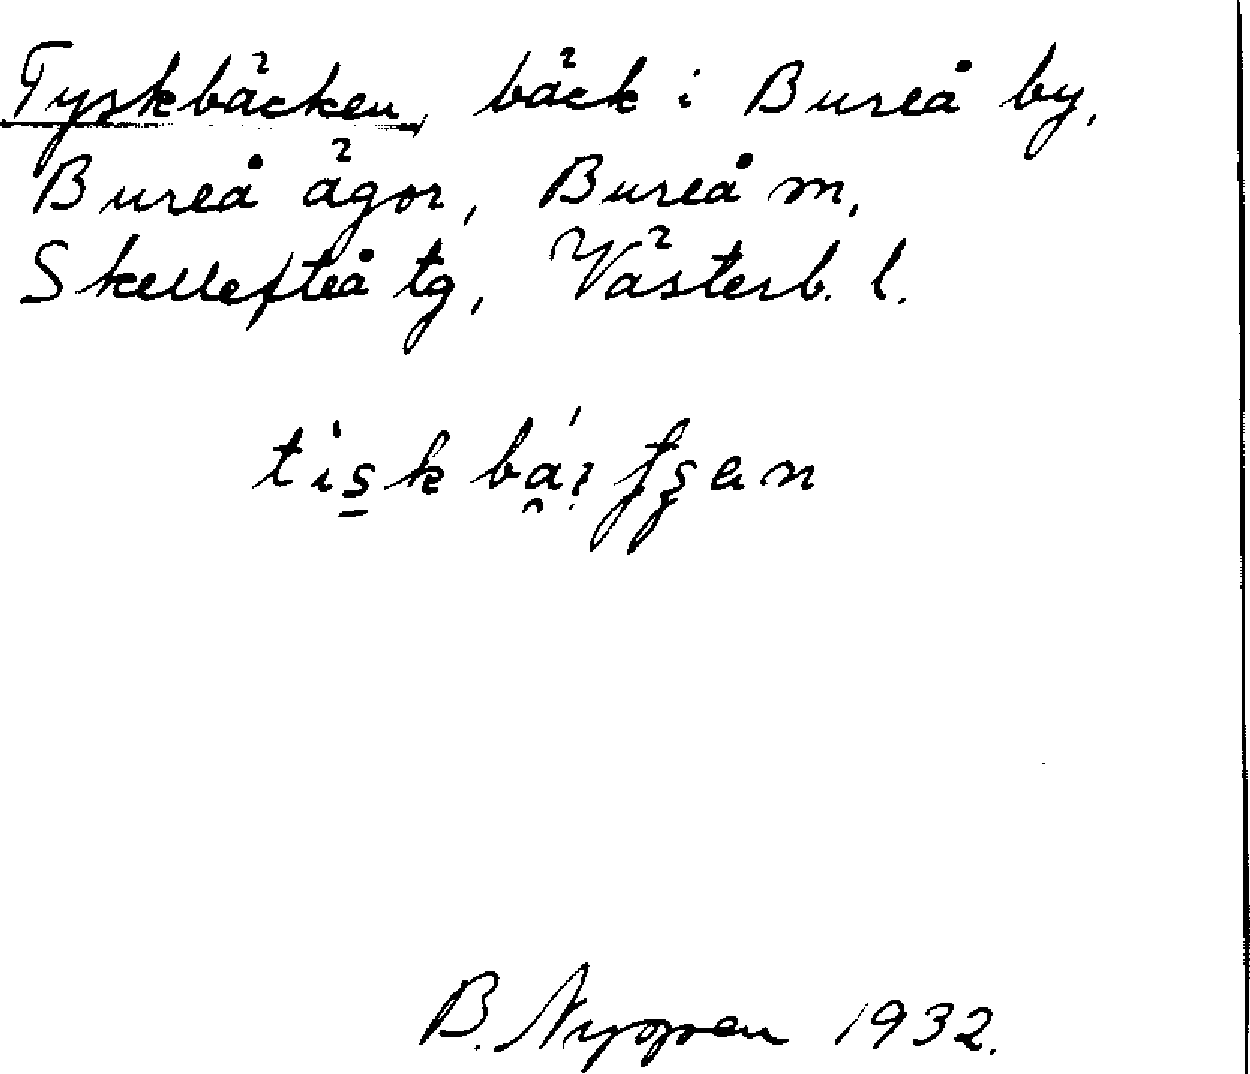 Tyskbäcken, bäck i Bureå by,
Bureå ägor, Bureå m,
Skellefteå tg, Västerb. l.
B. Nyopen 1932.